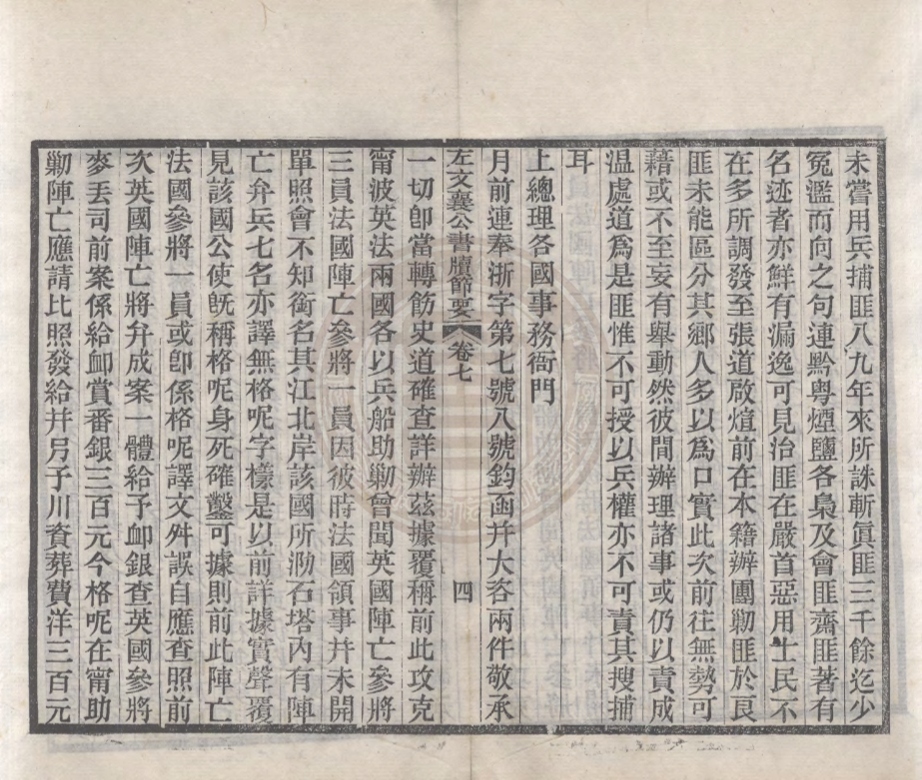 未嘗用兵捕匪八九年來所誅斬眞匪三千餘迄少
冤濫而向之句連黔粤煙鹽各梟及會匪齋匪著有
名迹者亦鮮有漏逸可見治匪在嚴首惡用士民不
在多所調發至張道啟煊前在本籍辦團勦匪於良
匪未能區分其鄉人多以爲口實此次前往無勢可
藉或不至妄有舉動然彼間辦理諸事或仍以責成
温處道爲是匪惟不可授以兵權亦不可責其搜捕
耳
上總理各國事務衙門
月前連奉浙字第七號八號鈞函并大咨兩件敬承
左文襄公書牘節要 卷七 四
一切卽當轉飭史道確查詳辦茲據覆稱前此攻克
甯波英法兩國各以兵船助勦曾聞英國陣亡參將
三員法國陣亡參將一員因彼時法國領事并未開
單照會不知銜名其江北岸該國所泐石塔內有陣
亡弁兵七名亦譯無格呢字樣是以前詳據實聲覆
見該國公使旣稱格呢身死確鑿可據則前此陣亡
法國參將一員或卽係格呢譯文舛誤自應查照前
次英國陣亡將弁成案一體給予卹銀查英國參將
麥丟司前案係給卹賞番銀三百元今格呢在甯助
勦陣亡應請比照發給并另予川資葬費洋三百元